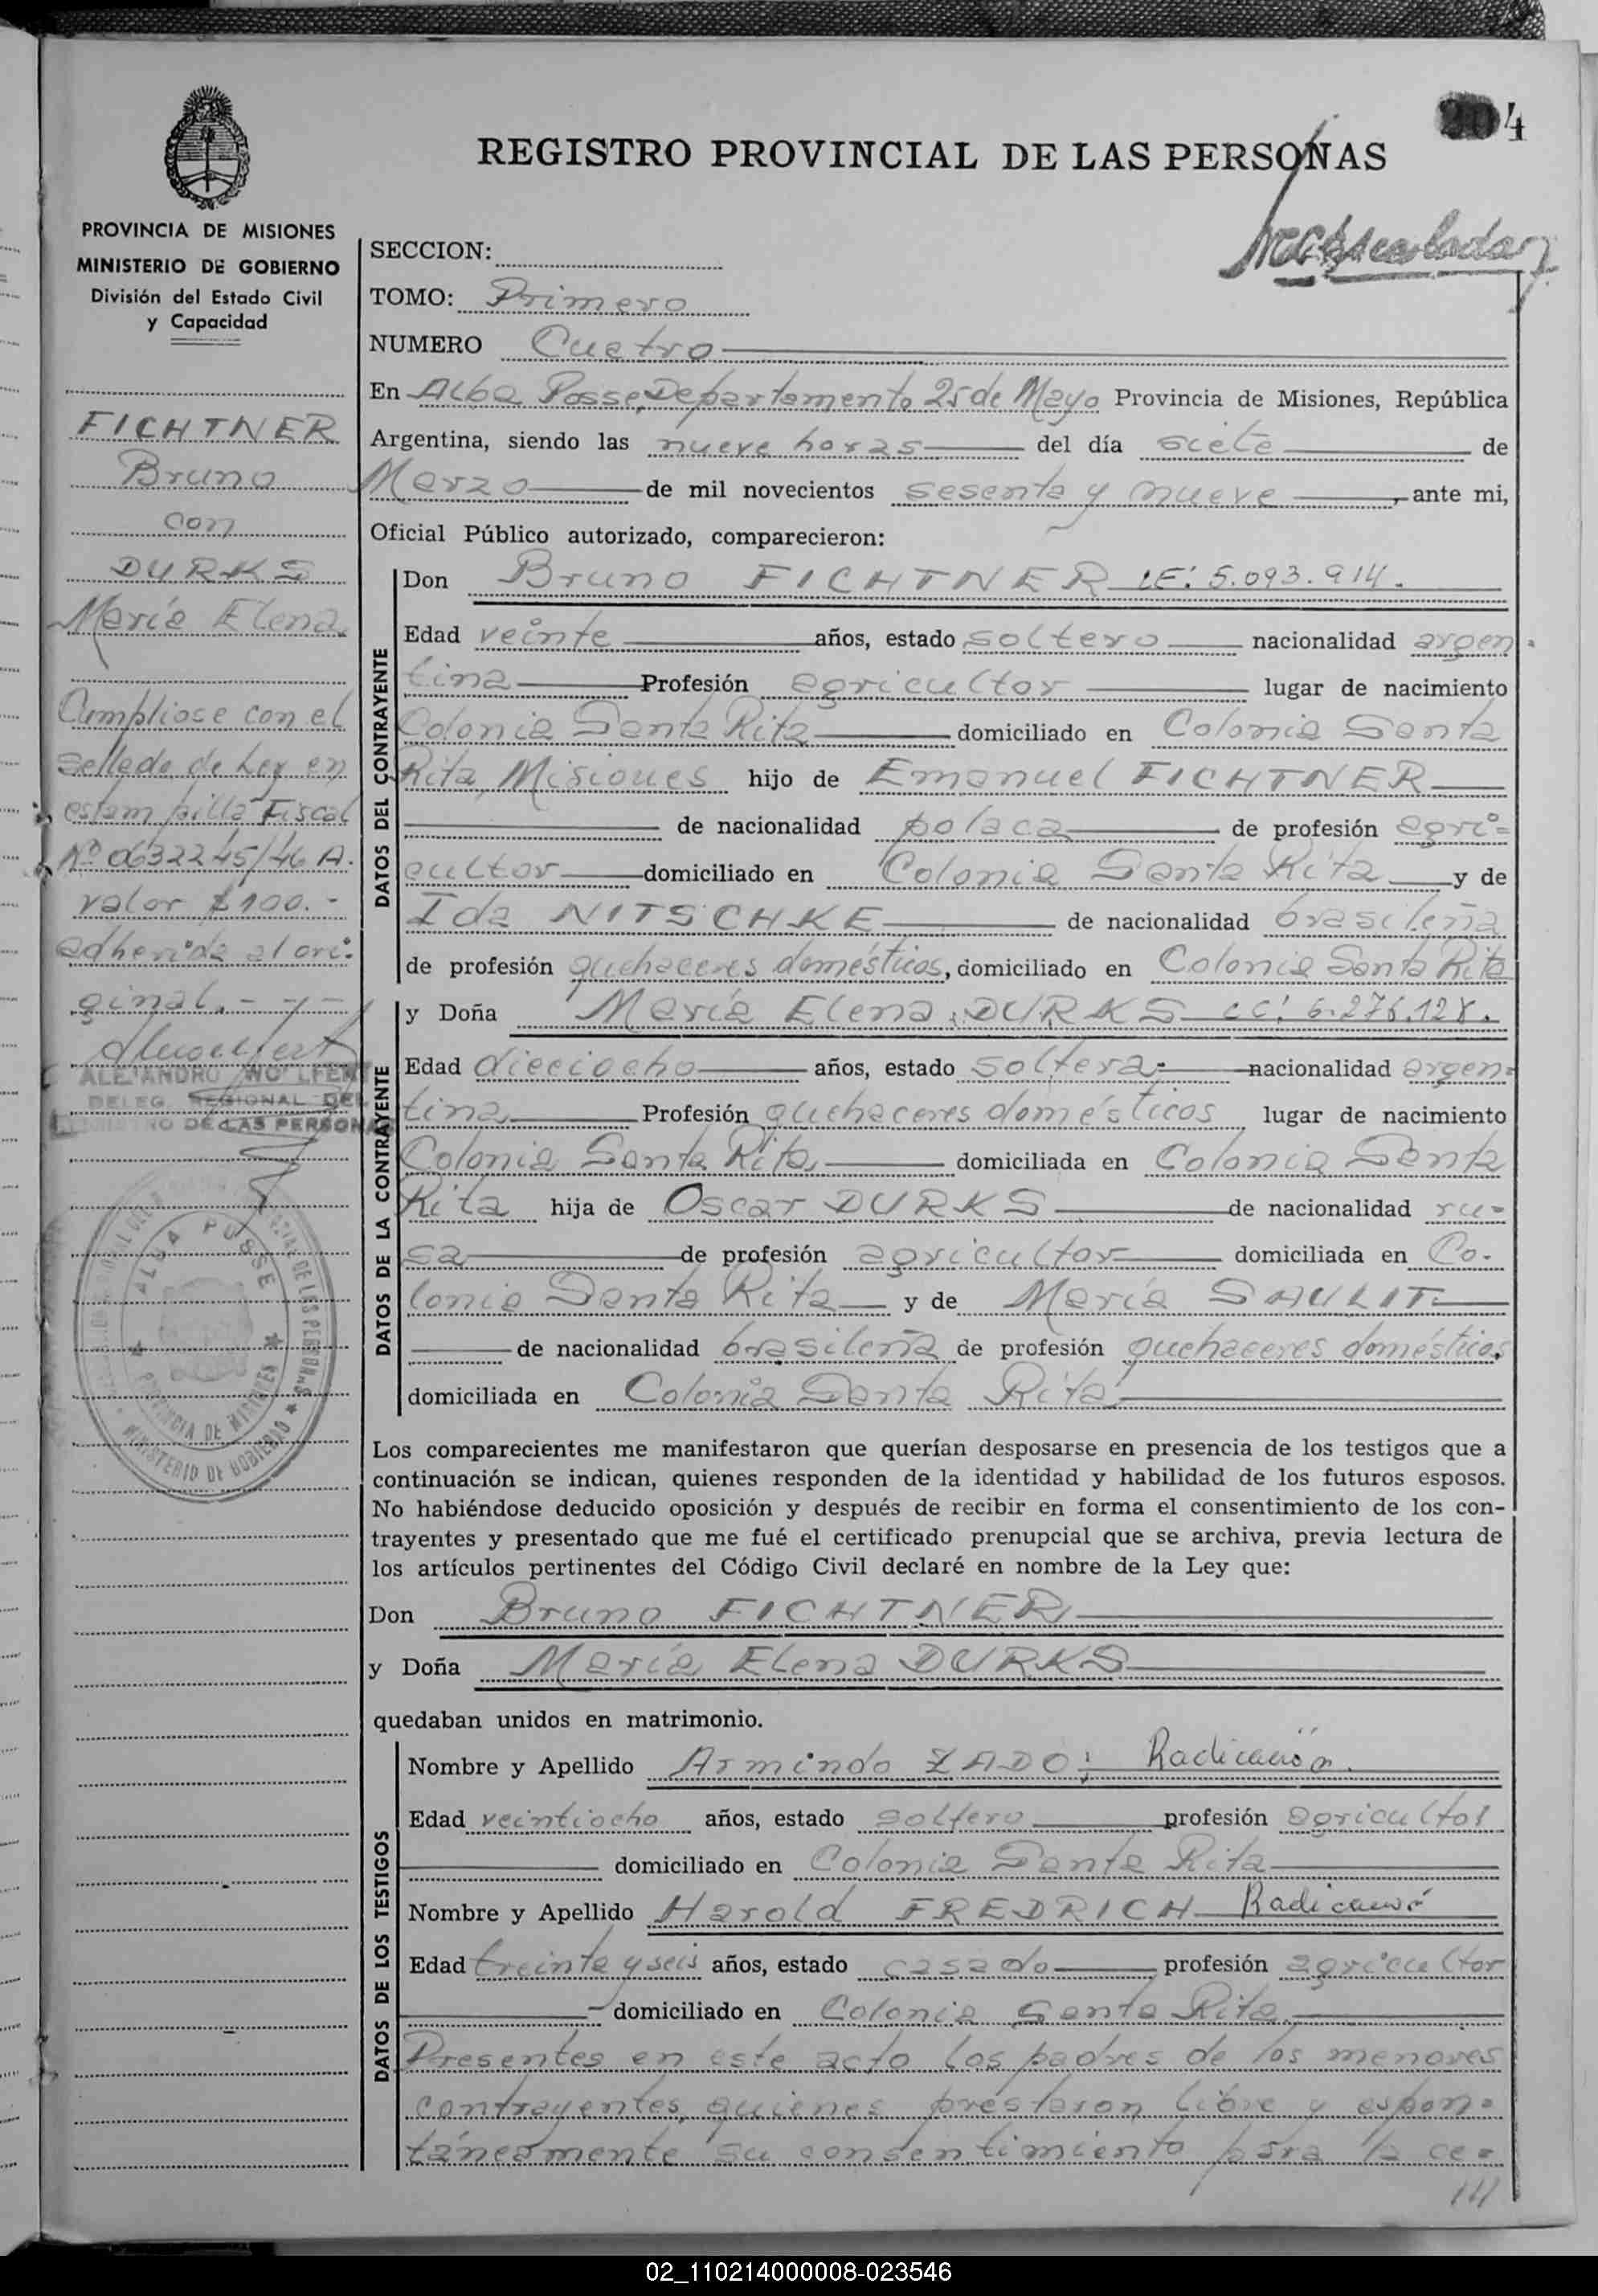 4
REGISTRO PROVINCIAL DE LAS PERSONAS
PROVINCIA DE MISIONES
MINISTERIO DE GOBIERNO
División del Estado Civil
y Capacidad
FICHTNER
Bruno
con
DURKS
María Elena
Cumpliose con el
sellado de Ley en
estampilla Fiscal
Nº 0632245/46 A.
valor $ 100.-
adherida al ori-
ginal.-
ALEJANDRO WOLFERT
DELEG. REGIONAL DEL
REGISTRO DE LAS PERSONAS
ALBA POSSE
PROVINCIA DE MISIONES
MINISTERIO DE GOBIERNO
SECCION:
TOMO: Primero
NUMERO Cuatro
En Alba Posse, Departamento 25 de Mayo Provincia de Misiones, República
Argentina, siendo las nueve horas del día siete de
Marzo de mil novecientos sesenta y nueve, ante mi,
Oficial Público autorizado, comparecieron:
DATOS DEL CONTRAYENTE
Don Bruno FICHTNER LE: 5.093.914.
Edad veinte años, estado soltero nacionalidad argen-
tina Profesión agricultor lugar de nacimiento
Colonia Santa Rita domiciliado en Colonia Santa
Rita, Misiones hijo de Emanuel FICHTNER
de nacionalidad polaca de profesión agri=
cultor domiciliado en Colonia Santa Rita y de
Ida NITSCHKE de nacionalidad brasileña
de profesión quehaceres domésticos, domiciliado en Colonia Santa Rita
DATOS DE LA CONTRAYENTE
y Doña María Elena DURKS LC: 6.276.128.
Edad dieciocho años, estado soltera nacionalidad argen=
tina Profesión quehaceres domésticos lugar de nacimiento
Colonia Santa Rita, domiciliada en Colonia Santa
Rita hija de Oscar DURKS de nacionalidad ru-
sa de profesión agricultor domiciliada en Co-
lonia Santa Rita y de María SAULIT
de nacionalidad brasileña de profesión quehaceres domésticos,
domiciliada en Colonia Santa Rita
Los comparecientes me manifestaron que querían desposarse en presencia de los testigos que a
continuación se indican, quienes responden de la identidad y habilidad de los futuros esposos.
No habiéndose deducido oposición y después de recibir en forma el consentimiento de los con-
trayentes y presentado que me fué el certificado prenupcial que se archiva, previa lectura de
los artículos pertinentes del Código Civil declaré en nombre de la Ley que:
Don Bruno FICHTNER
y Doña María Elena DURKS
quedaban unidos en matrimonio.
DATOS DE LOS TESTIGOS
Nombre y Apellido Armindo ZADO; Radicación
Edad veintiocho años, estado soltero profesión agricultor
domiciliado en Colonia Santa Rita
Nombre y Apellido Harold FREDRICH
Edad treinta y seis años, estado casado profesión agricultor
domiciliado en Colonia Santa Rita
Presentes en este acto los padres de los menores
contrayentes, quienes prestaron libre y espon=
táneamente su consentimiento para la ce=
02_110214000008-023546